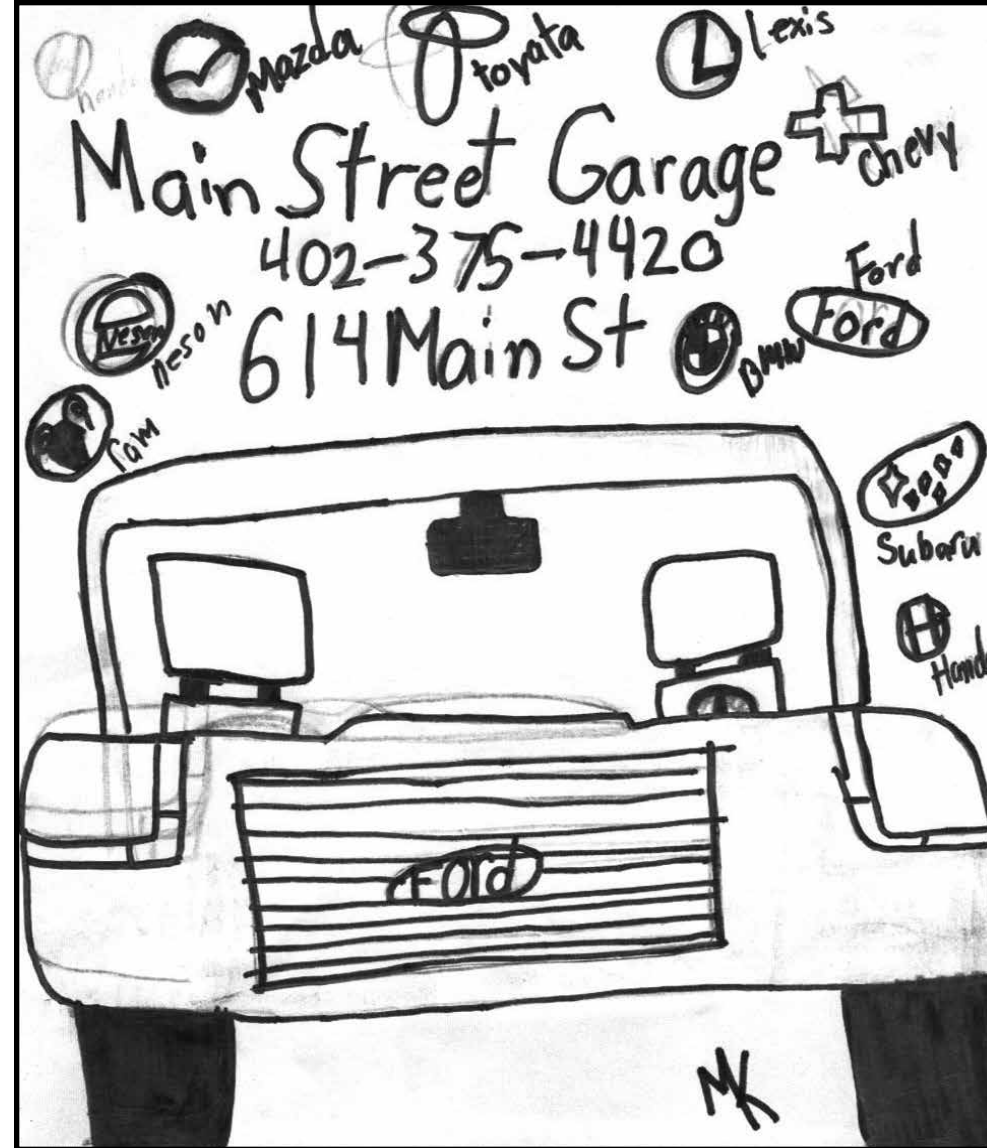 Mazda
toyata
Lexis
L
Main Street Garage
chevy
402-375-4420
Ford
Ford
Neson
neson
614 Main St
BMW
ram
Subaru
H
Ford
MK